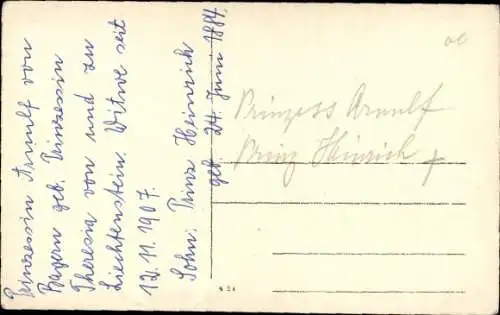 Prinzessin Arnulf von
Bayern geb. Prinzessin
Theresia von und zu
Liechtenstein. Witwe seit
12.11.1907.
Sohn: Prinz Heinrich
geb. 24. Juni 1884.
Prinzess Arnulf
Prinz Heinrich +